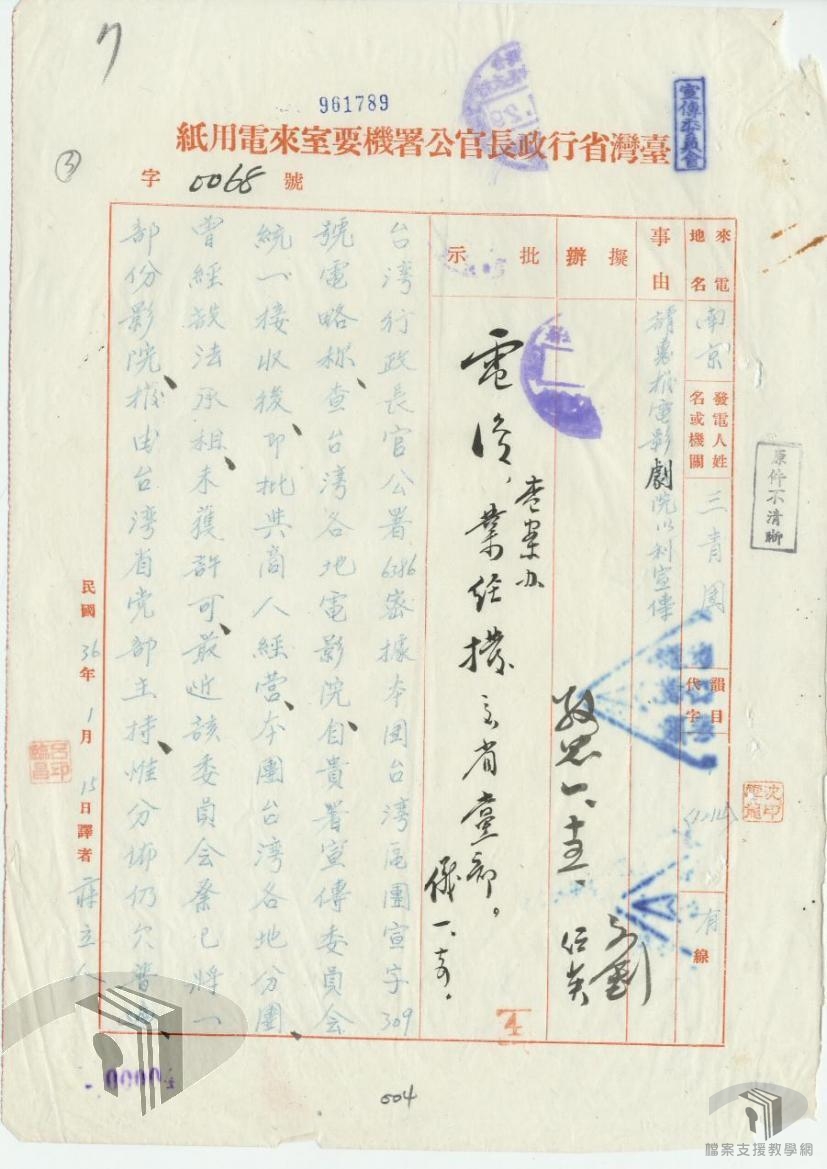 961789
宣傳委員會
臺灣省行政長官公署機要室來電用紙
字 0068 號
③
來電地名 南京
發電人姓名或機關 三青團
韻目代字
有線
事由 請惠撥電影劇院以利宣傳
擬辦
批示
原件不清晰
電復,業經撥交省黨部。
查案办
台湾行政長官公署6386密據本团台湾區團宣字309
號電略称、查台湾各地電影院自貴署宣傳委員会
統一接收後、即批與商人經营、本團台湾各地分團
曾經設法承租、未獲許可、最近該委員会祭已將一
部份影院、撥由台湾省党部主持、惟分佈仍欠普遍、
民國36年1月15日譯者
004
檔案支援教學網